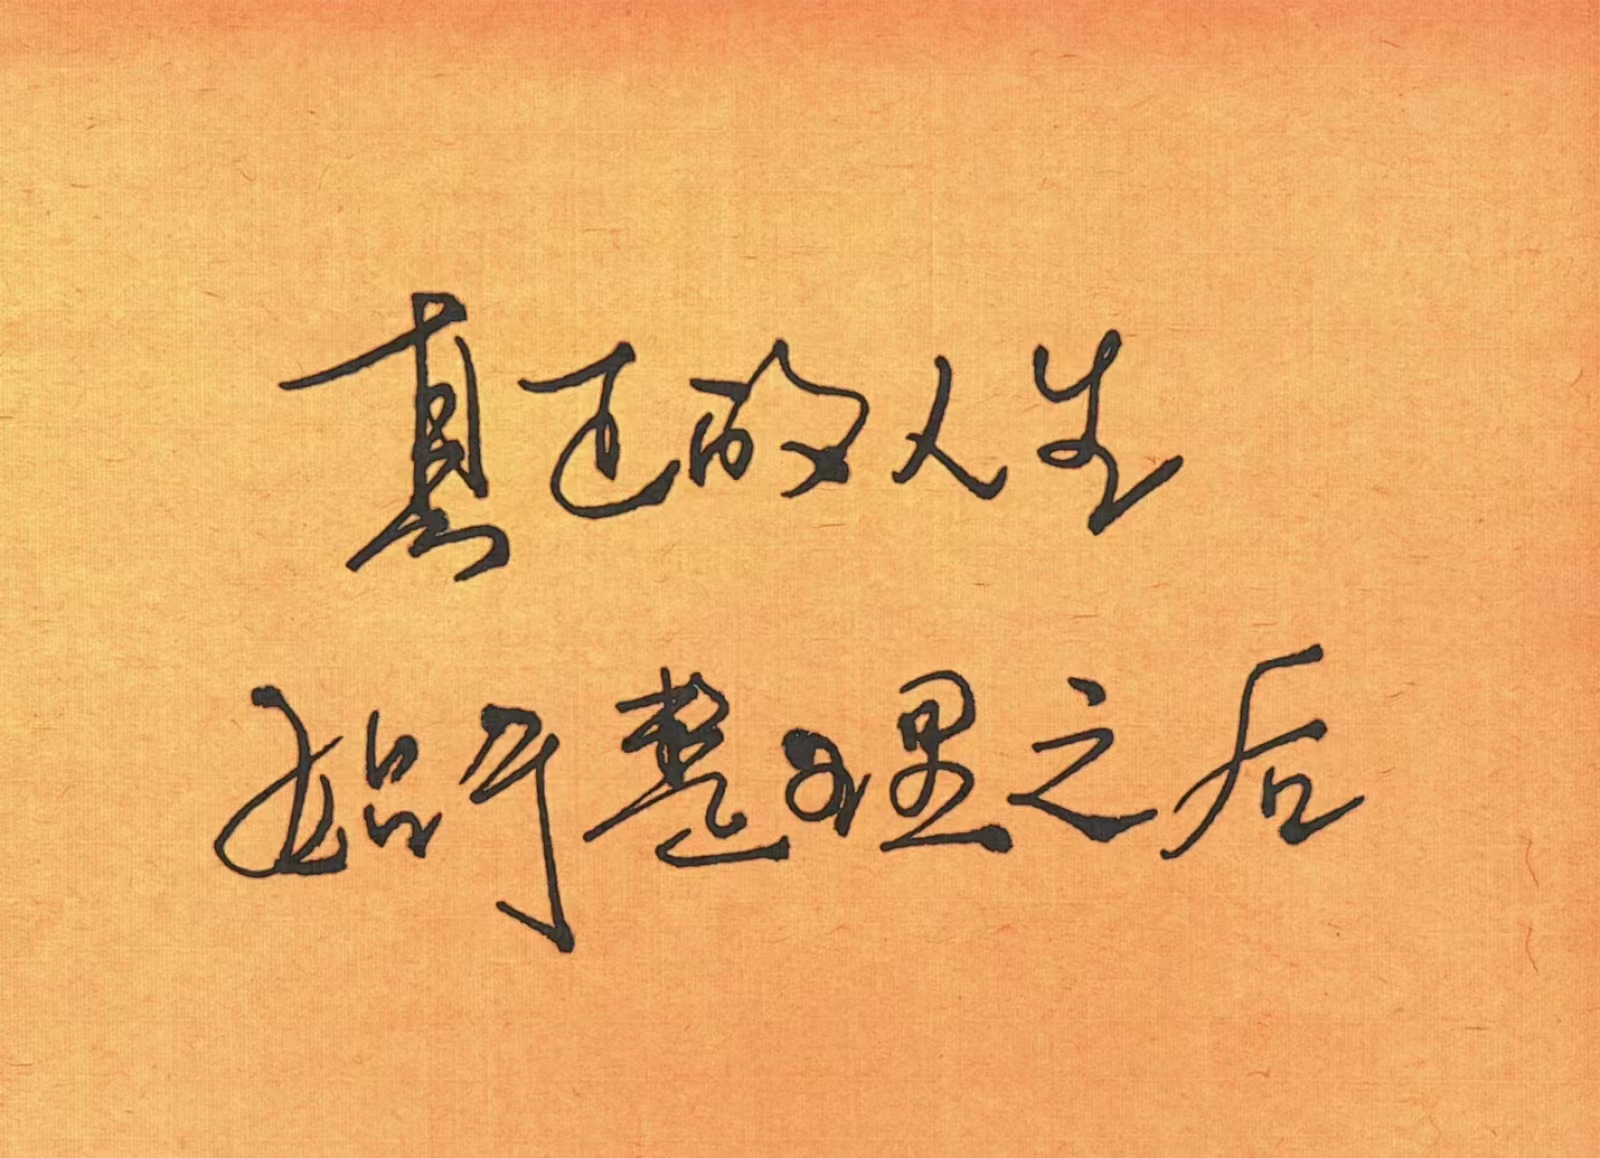 真正的人生
始于整理之后